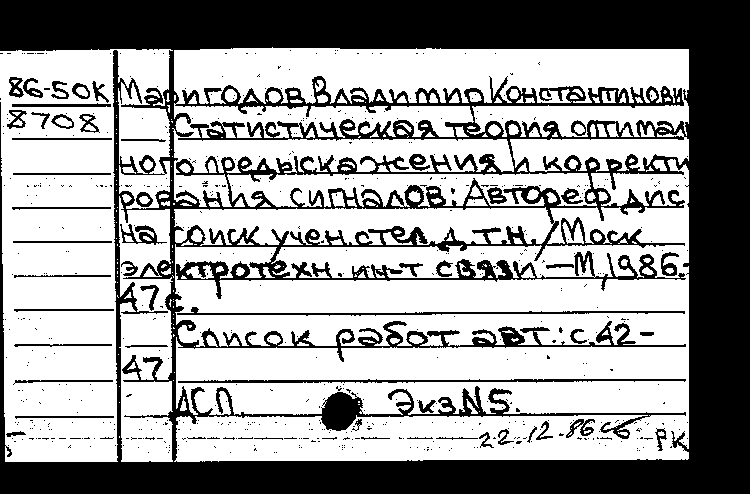 86-50к Маригодов, Владимир Константинович
8708 Статистическая теория оптималь
ного предыскажения и корректи
рования сигналов: Автореф. дис.
на соиск. учен. степ. д. т. н. / Моск
электротехн. ин-т связи. — М, 1986.-
47 с.
Список работ авт.: с. 42-
47.
ДСП. Экз. N5.
22.12.86 РК